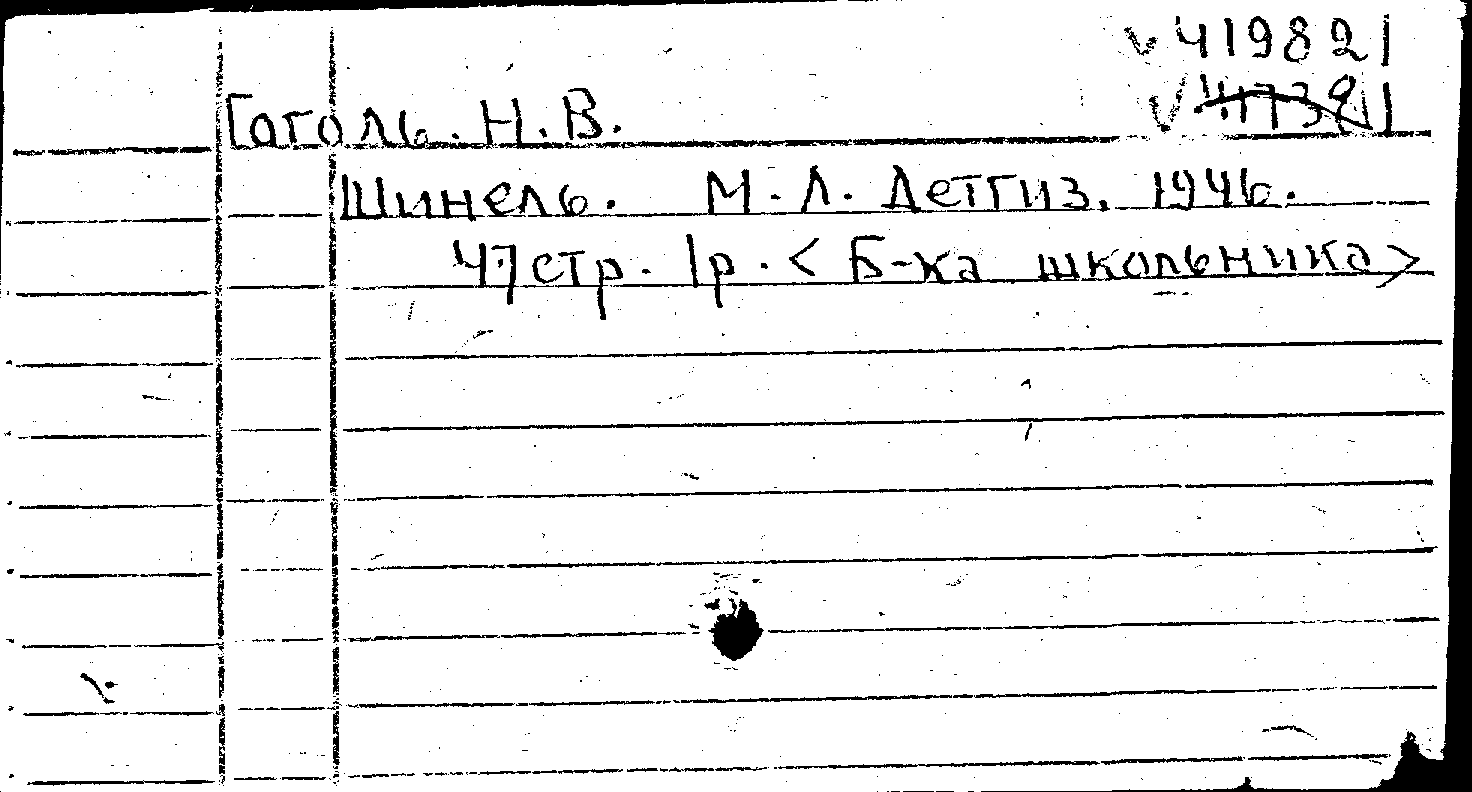 √ 41982 |
√ 41738 |
Гоголь. Н. В.
Шинель. М. Л. Детгиз. 1946.
47 стр. 1р. < Б-ка школьника >